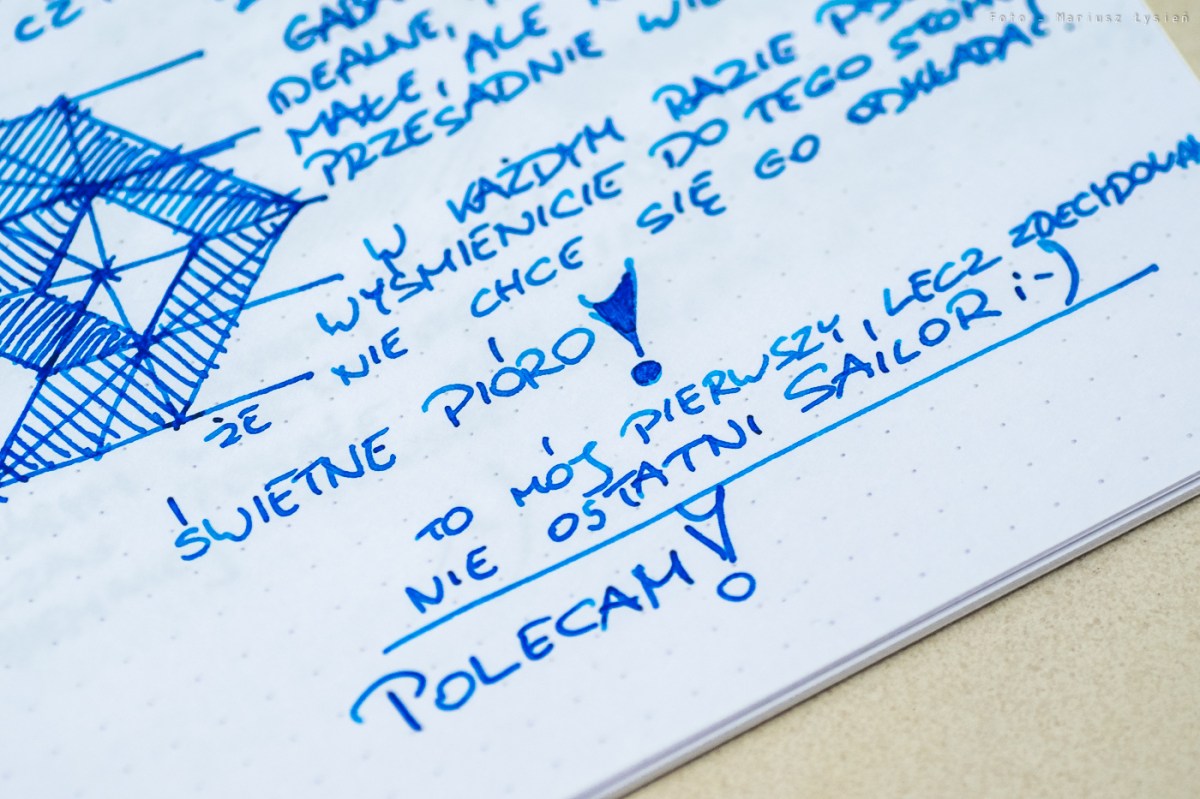 Foto - Mariusz Łysień
CZ
GADA
IDEALNE,
MAŁE, ALE
PRZESADNIE
W KAŻDYM RAZIE
WYŚMIENICIE DO TEGO
ŻE NIE CHCE SIĘ GO ODKŁADAĆ.
ŚWIETNE PIÓRO!
TO MÓJ PIERWSZY, LECZ ZDECYDOWA
NIE OSTATNI SAILOR ;-)
POLECAM!